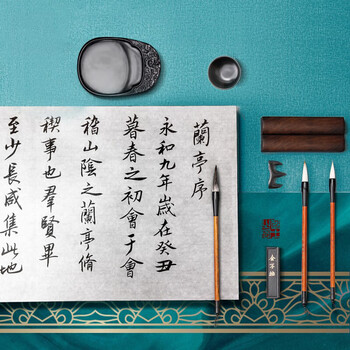 蘭亭序
永和九年歲在癸丑
暮春之初會于會
稽山陰之蘭亭脩
禊事也羣賢畢
至少長咸集此地